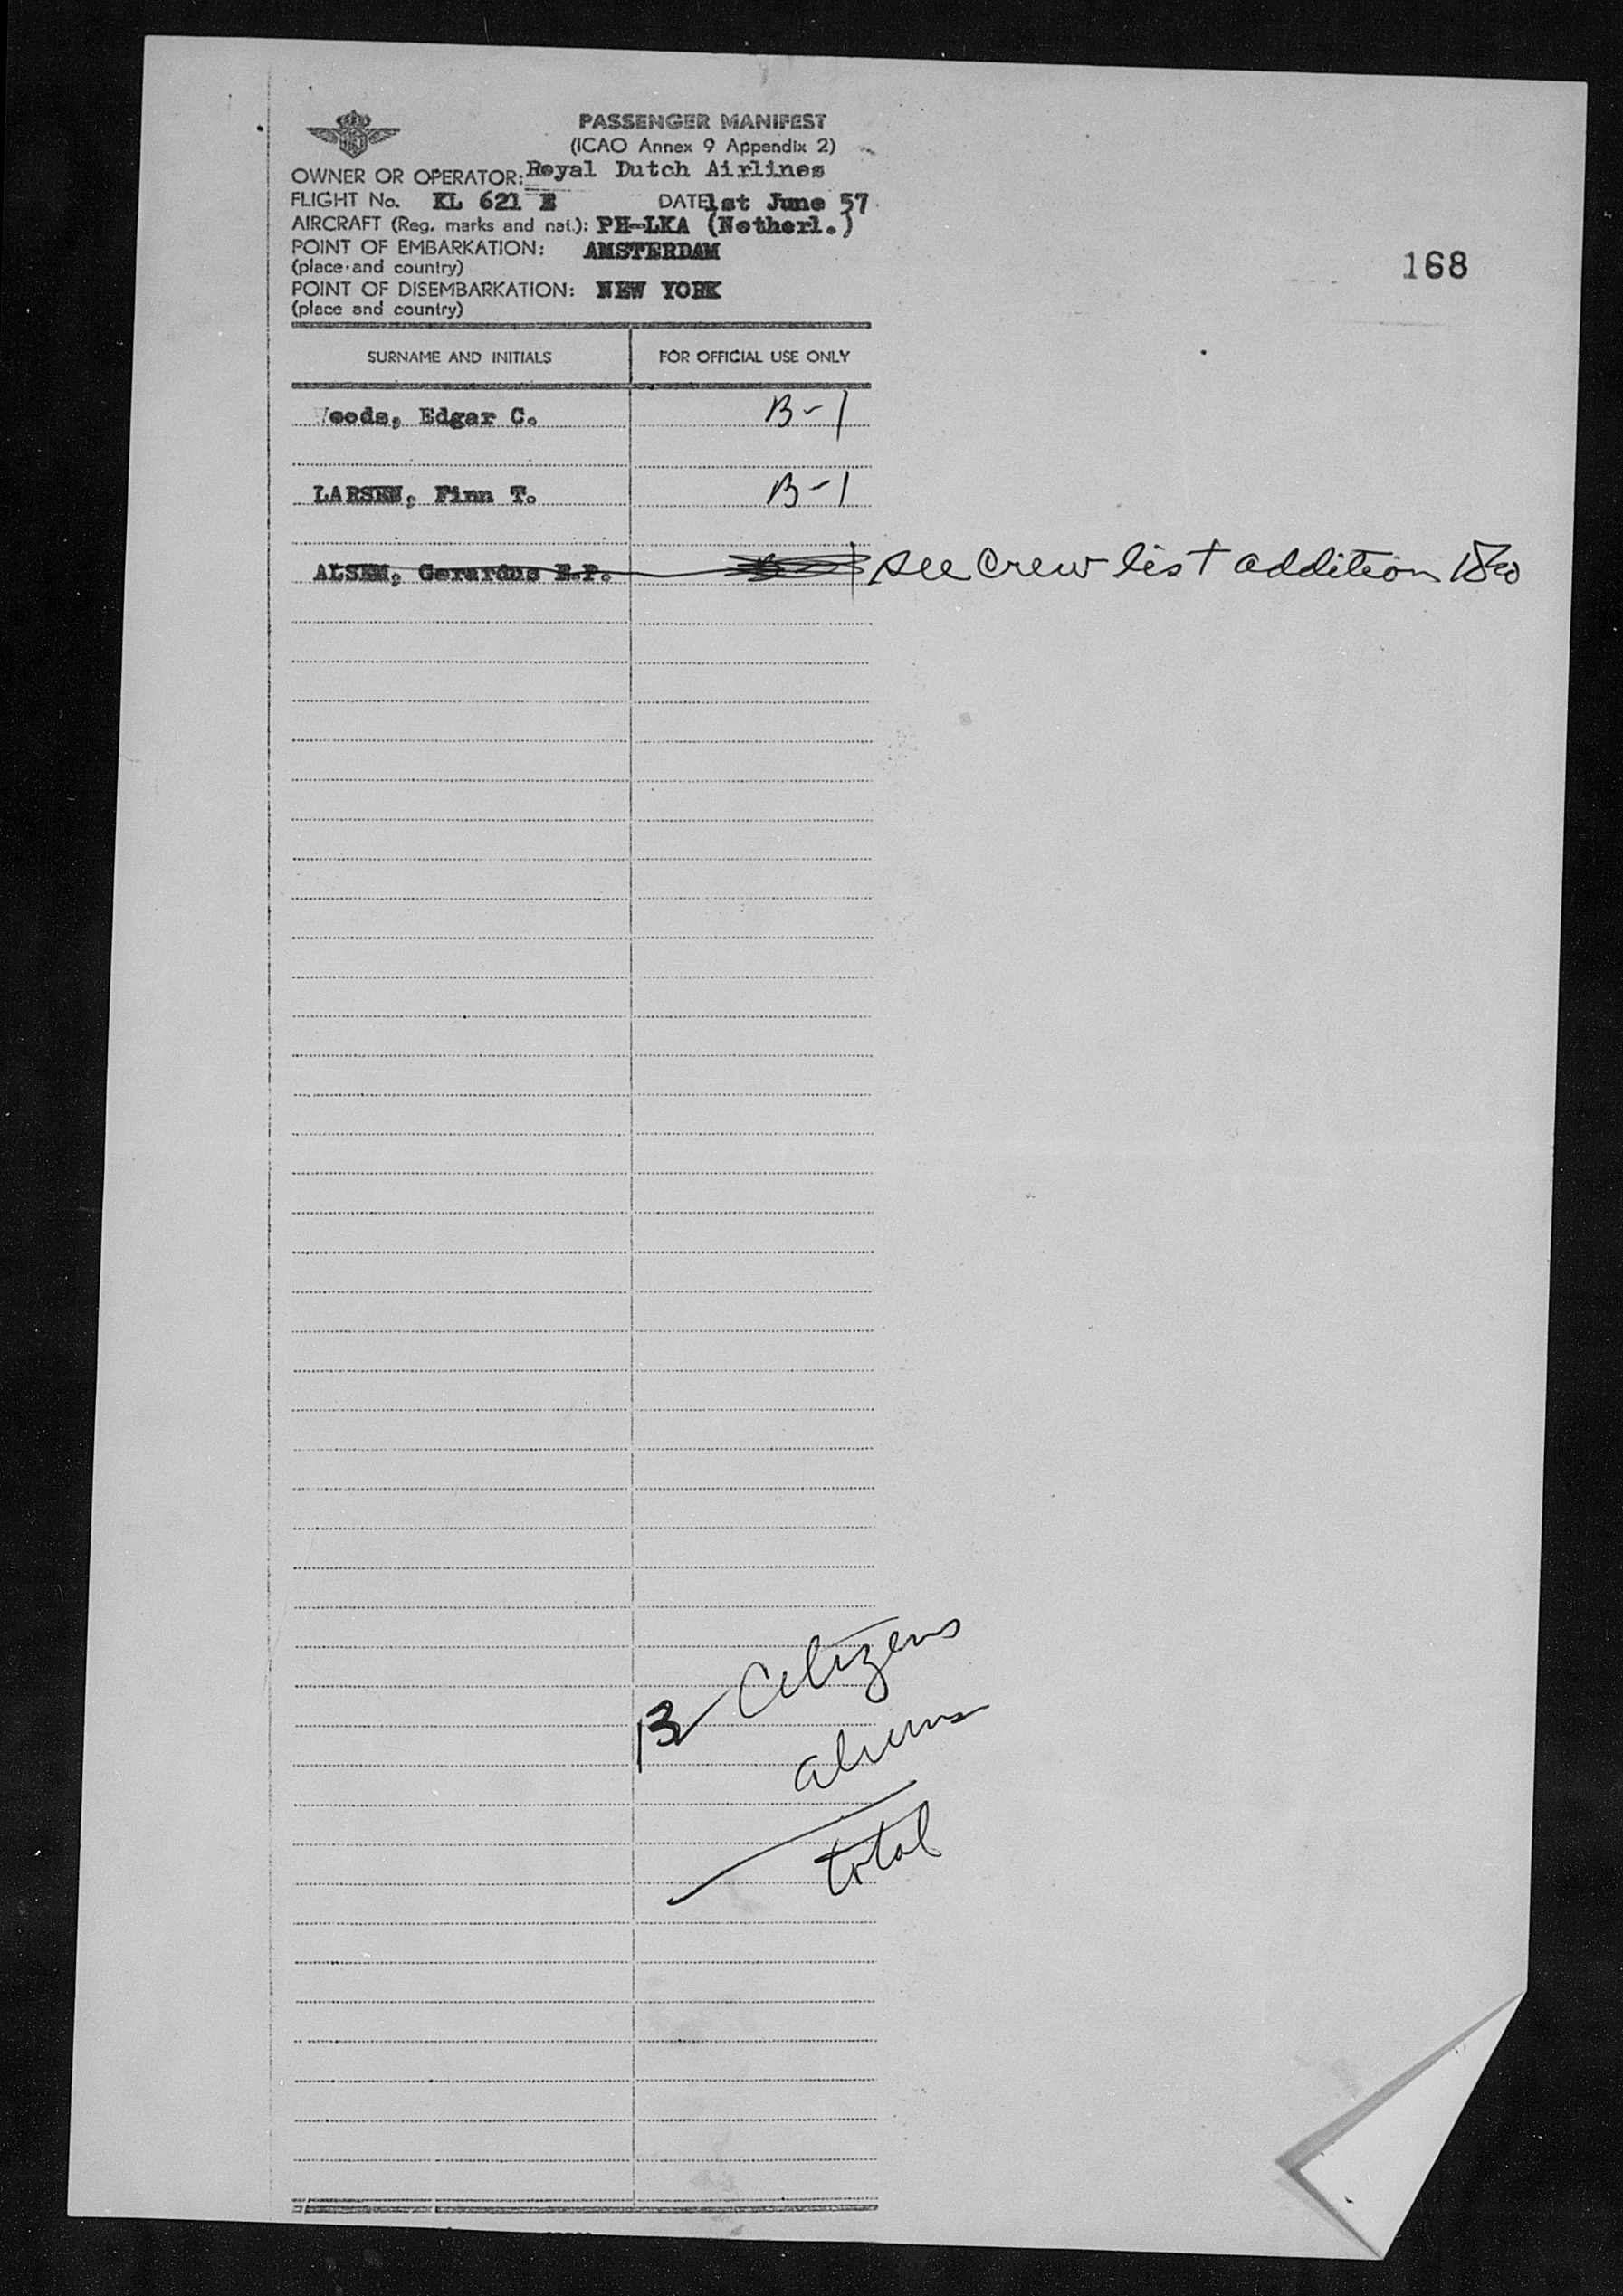 PASSENGER MANIFEST
(ICAO Annex 9 Appendix 2)
OWNER OR OPERATOR: Royal Dutch Airlines
FLIGHT No. KL 621 E DATE 1st June 57
AIRCRAFT (Reg. marks and nat.): PH-LKA (Netherl.)
POINT OF EMBARKATION: AMSTERDAM
(place and country)
168
POINT OF DISEMBARKATION: NEW YORK
(place and country)
SURNAME AND INITIALS FOR OFFICIAL USE ONLY
Woods, Edgar C. B-1
LARSEN, Finn T. B-1
ALSEM, Gerardus E.P. see Crew list addition
Citizens
aliens
total